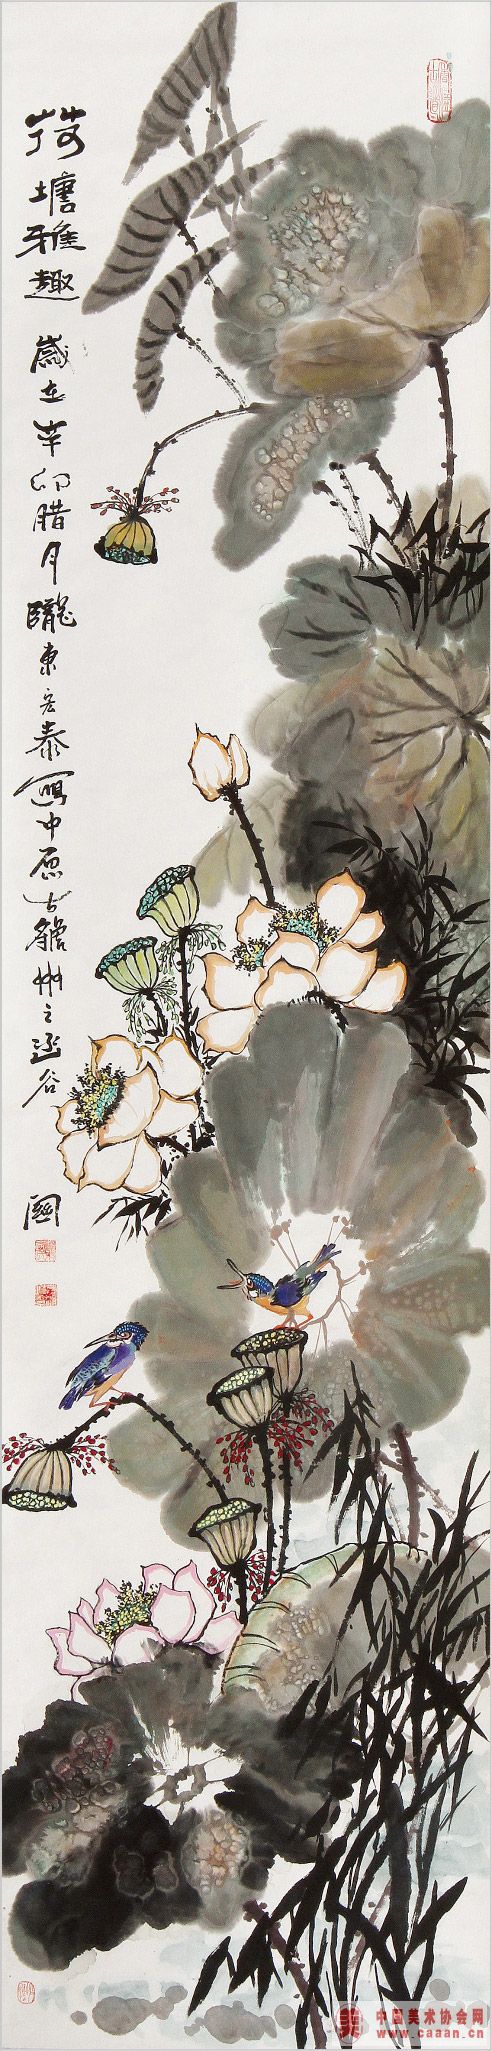 荷塘雅趣 歲在辛卯腊月隴東宏泰寫中原古虢州之函谷關
中国美术协会网
www.caaan.cn